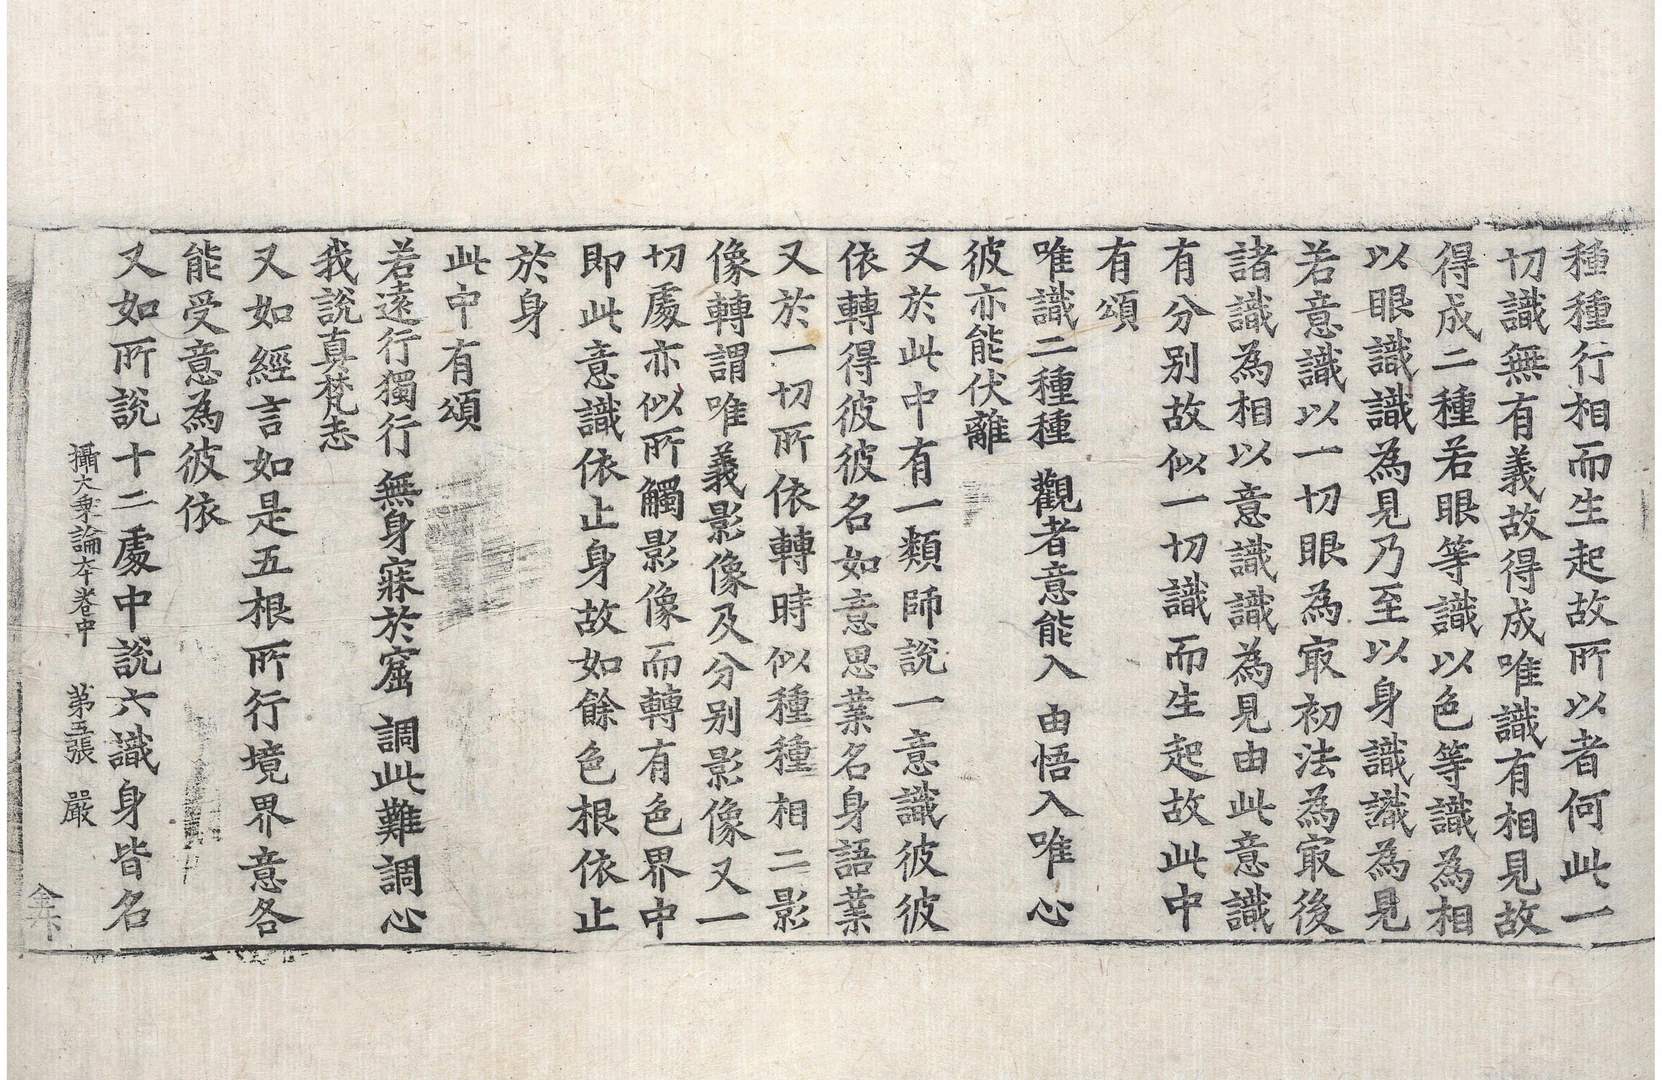 種種行相而生起故所以者何此一
切識無有義故得成唯識有相見故
得成二種若眼等識以色等識為相
以眼識識為見乃至以身識識為見
若意識以一切眼為㝡初法為㝡後
諸識為相以意識識為見由此意識
有分别故似一切識而生起故此中
有頌
唯識二種種　觀者意能入　由悟入唯心
彼亦能伏離
又於此中有一類師說一意識彼彼
依轉得彼彼名如意思業名身語業
又於一切所依轉時似種種相二影
像轉謂唯義影像及分别影像又一
切處亦似所觸影像而轉有色界中
即此意識依止身故如餘色根依止
於身
此中有頌
若遠行獨行　無身寐於窟　調此難調心
我說真梵志
又如經言如是五根所行境界意各
能受意為彼依
又如所說十二處中說六識身皆名
攝大乘論本卷中　第五張　嚴